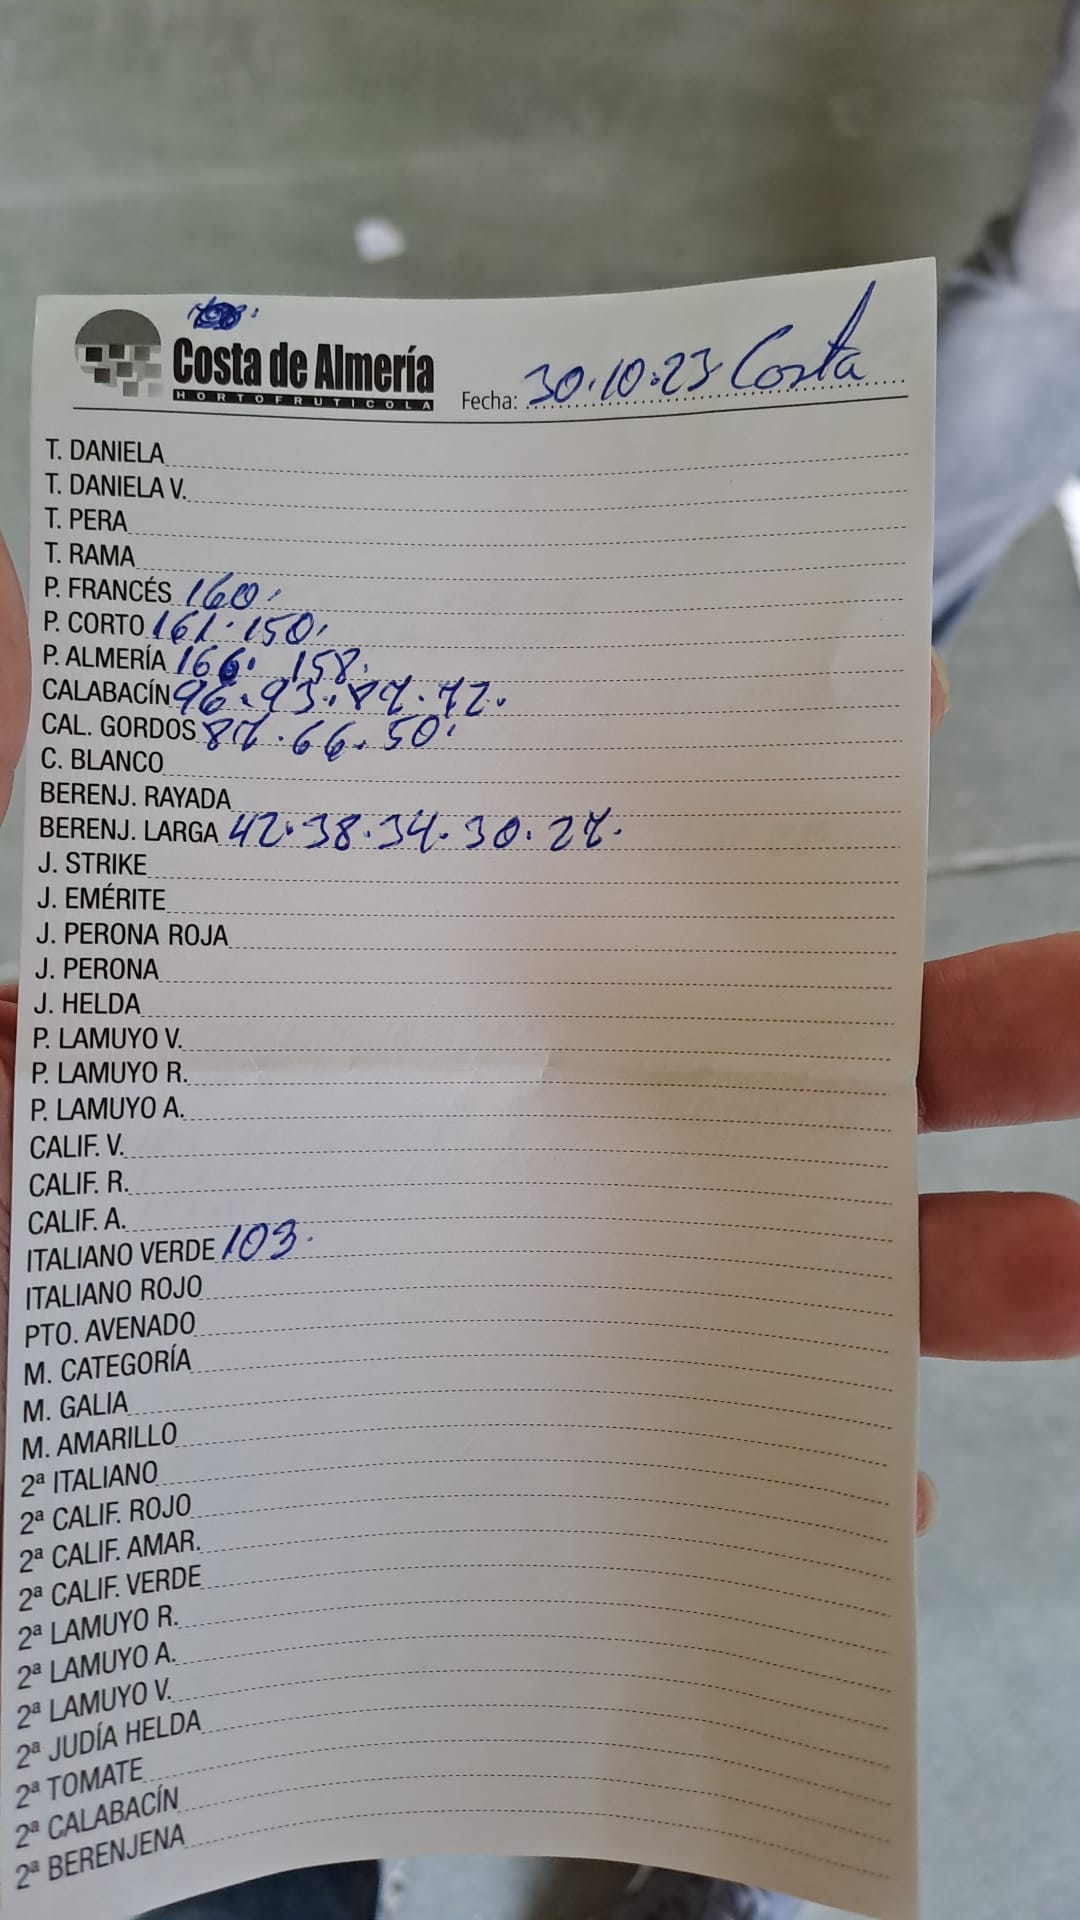 Costa de Almería
HORTOFRUTICOLA
Fecha: 30.10.23 Costa
T. DANIELA
T. DANIELA V.
T. PERA
T. RAMA
P. FRANCÉS 160.
P. CORTO 161. 150.
P. ALMERÍA 166. 158.
CALABACÍN 96. 93. 87. 72.
CAL. GORDOS 87. 66. 50.
C. BLANCO
BERENJ. RAYADA
BERENJ. LARGA 42. 38. 34. 30. 27.
J. STRIKE
J. EMÉRITE
J. PERONA ROJA
J. PERONA
J. HELDA
P. LAMUYO V.
P. LAMUYO R.
P. LAMUYO A.
CALIF. V.
CALIF. R.
CALIF. A.
ITALIANO VERDE 103.
ITALIANO ROJO
PTO. AVENADO
M. CATEGORÍA
M. GALIA
M. AMARILLO
2ª ITALIANO
2ª CALIF. ROJO
2ª CALIF. AMAR.
2ª CALIF. VERDE
2ª LAMUYO R.
2ª LAMUYO A.
2ª LAMUYO V.
2ª JUDÍA HELDA
2ª TOMATE
2ª CALABACÍN
2ª BERENJENA